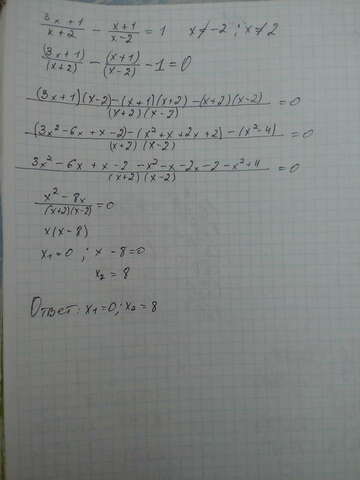 (3x+1)/(x+2) - (x+1)/(x-2) = 1   x≠-2 ; x≠2
(3x+1)/(x+2) - (x+1)/(x-2) - 1 = 0
((3x+1)(x-2)-(x+1)(x+2)-(x+2)(x-2))/((x+2)(x-2)) = 0
((3x²-6x+x-2)-(x²+x+2x+2)-(x²-4))/((x+2)(x-2)) = 0
(3x²-6x+x-2-x²-x-2x-2-x²+4)/((x+2)(x-2)) = 0
(x²-8x)/((x+2)(x-2)) = 0
x(x-8)
x₁=0 ; x-8=0
x₂=8
Ответ: x₁=0; x₂=8